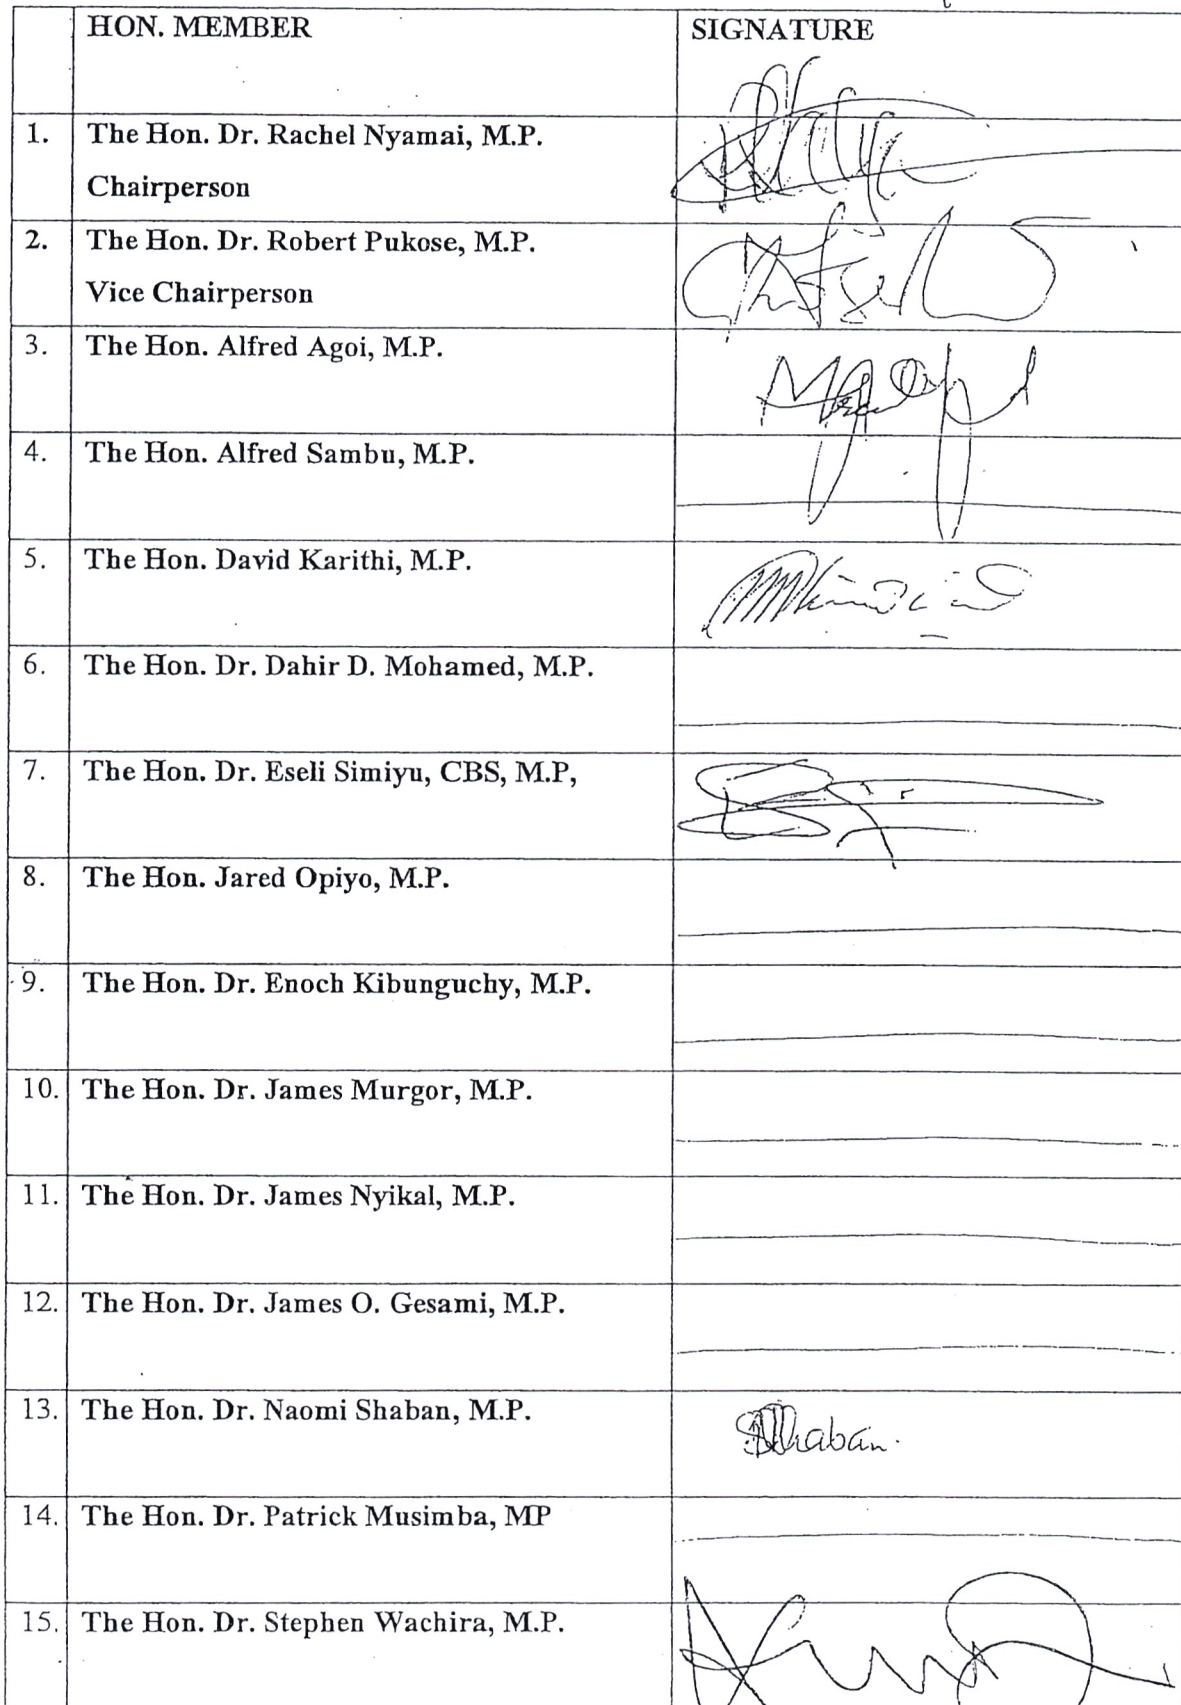 HON. MEMBER SIGNATURE
1. The Hon. Dr. Rachel Nyamai, M.P.
Chairperson
2. The Hon. Dr. Robert Pukose, M.P.
Vice Chairperson
3. The Hon. Alfred Agoi, M.P.
4. The Hon. Alfred Sambu, M.P.
5. The Hon. David Karithi, M.P.
6. The Hon. Dr. Dahir D. Mohamed, M.P.
7. The Hon. Dr. Eseli Simiyu, CBS, M.P,
8. The Hon. Jared Opiyo, M.P.
9. The Hon. Dr. Enoch Kibunguchy, M.P.
10. The Hon. Dr. James Murgor, M.P.
11. The Hon. Dr. James Nyikal, M.P.
12. The Hon. Dr. James O. Gesami, M.P.
13. The Hon. Dr. Naomi Shaban, M.P. Shaban.
14. The Hon. Dr. Patrick Musimba, MP
15. The Hon. Dr. Stephen Wachira, M.P.